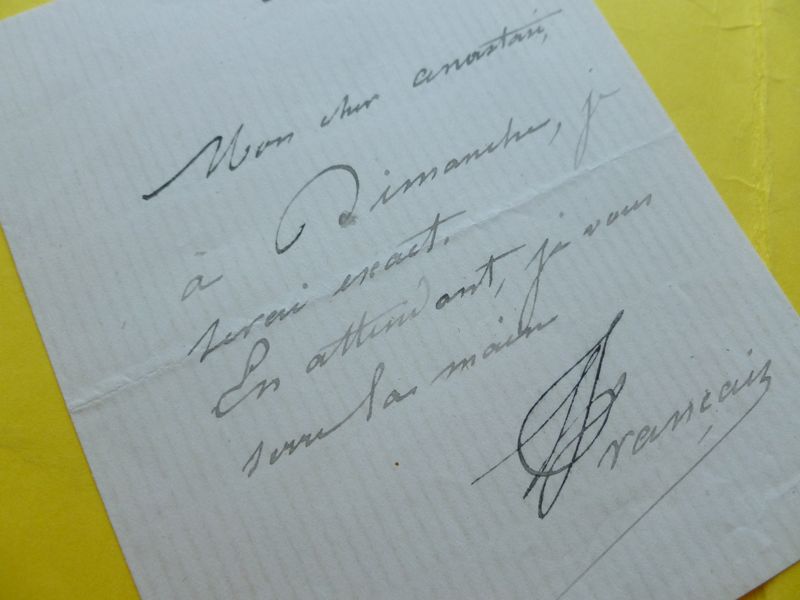 Mon cher anastasi,
à Dimanche, je
serai exact.
En attendant, je vous
serre la main
Français